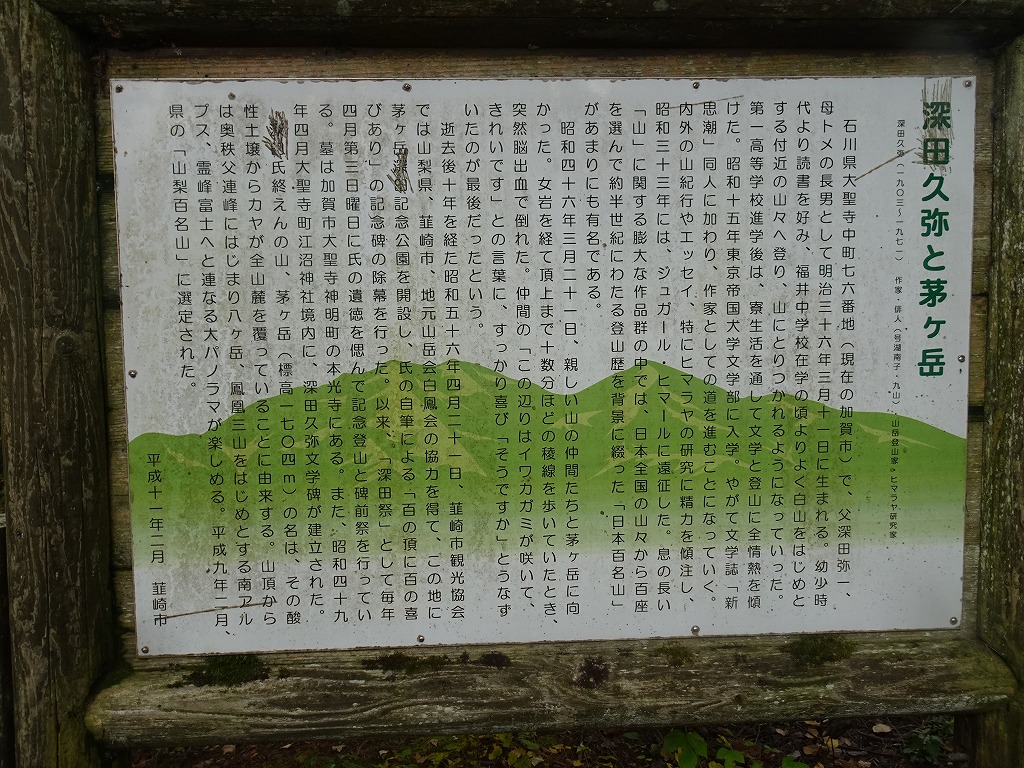 深田久弥と茅ヶ岳
深田久弥(一九〇三〜一九七一) 作家・俳人(号湖南子・九山) 山岳登山家・ヒマラヤ研究家
石川県大聖寺中町七六番地(現在の加賀市)で、父深田弥一、
母トメの長男として明治三十六年三月十一日に生まれる。幼少時
代より読書を好み、福井中学校在学の頃よりよく白山をはじめと
する付近の山々へ登り、山にとりつかれるようになっていった。
第一高等学校進学後は、寮生活を通して文学と登山に全情熱を傾
けた。昭和十五年東京帝国大学文学部に入学。やがて文学誌「新
思潮」同人に加わり、作家としての道を進むことになっていく。
内外の山紀行やエッセイ、特にヒマラヤの研究に精力を傾注し、
昭和三十三年には、ジュガール・ヒマールに遠征した。息の長い
「山」に関する膨大な作品群の中では、日本全国の山々から百座
を選んで約半世紀にわたる登山歴を背景に綴った「日本百名山」
があまりにも有名である。
昭和四十六年三月二十一日、親しい山の仲間たちと茅ヶ岳に向
かった。女岩を経て頂上まで十数分ほどの稜線を歩いていたとき、
突然脳出血で倒れた。仲間の「この辺りはイワカガミが咲いて、
きれいです」との言葉に、すっかり喜び「そうですか」とうなず
いたのが最後だったという。
逝去後十年を経た昭和五十六年四月二十一日、韮崎市観光協会
では山梨県、韮崎市、地元山岳会白鳳会の協力を得て、この地に
茅ヶ岳深田記念公園を開設し、氏の自筆による「百の頂に百の喜
びあり」の記念碑の除幕を行った。以来、「深田祭」として毎年
四月第三日曜日に氏の遺徳を偲んで記念登山と碑前祭を行ってい
る。墓は加賀市大聖寺神明町の本光寺にある。また、昭和四十九
年四月大聖寺町江沼神社境内に、深田久弥文学碑が建立された。
氏終えんの山、茅ヶ岳(標高一七〇四m)の名は、その酸
性土壌からカヤが全山麓を覆っていることに由来する。山頂から
は奥秩父連峰にはじまり八ヶ岳、鳳凰三山をはじめとする南アル
プス、霊峰富士へと連なる大パノラマが楽しめる。平成九年二月、
県の「山梨百名山」に選定された。
平成十一年二月 韮崎市